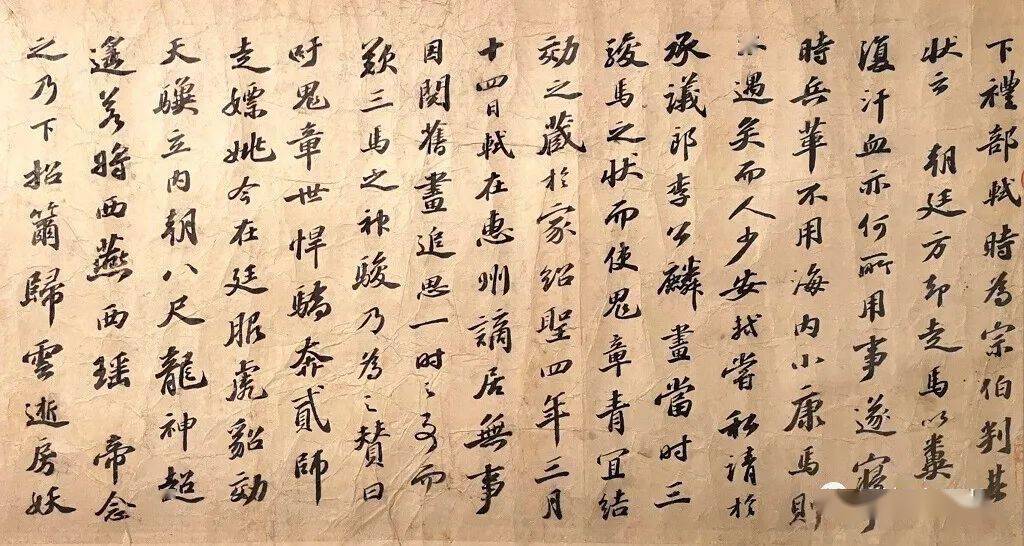 下禮部軾時為宗伯判其
狀云 朝廷方却走馬以糞
復汗血亦何所用事遂寢
時兵革不用海内小康馬則
不遇矣而人少安軾嘗私請於
承議郎李公麟畫當时三
駿馬之状而使鬼章青冝結
効之藏於家紹聖四年三月
十四日軾在惠州謫居無事
因閱舊畫追思一时之事而
歎三馬之神駿乃為之贊曰
吁鬼章世悍驕奔貳師
走嫖姚今在廷服虎貂効
天驥立内朝八尺龍神超
遙若將西燕西瑶 帝念
之乃下招籋歸雲逝房妖